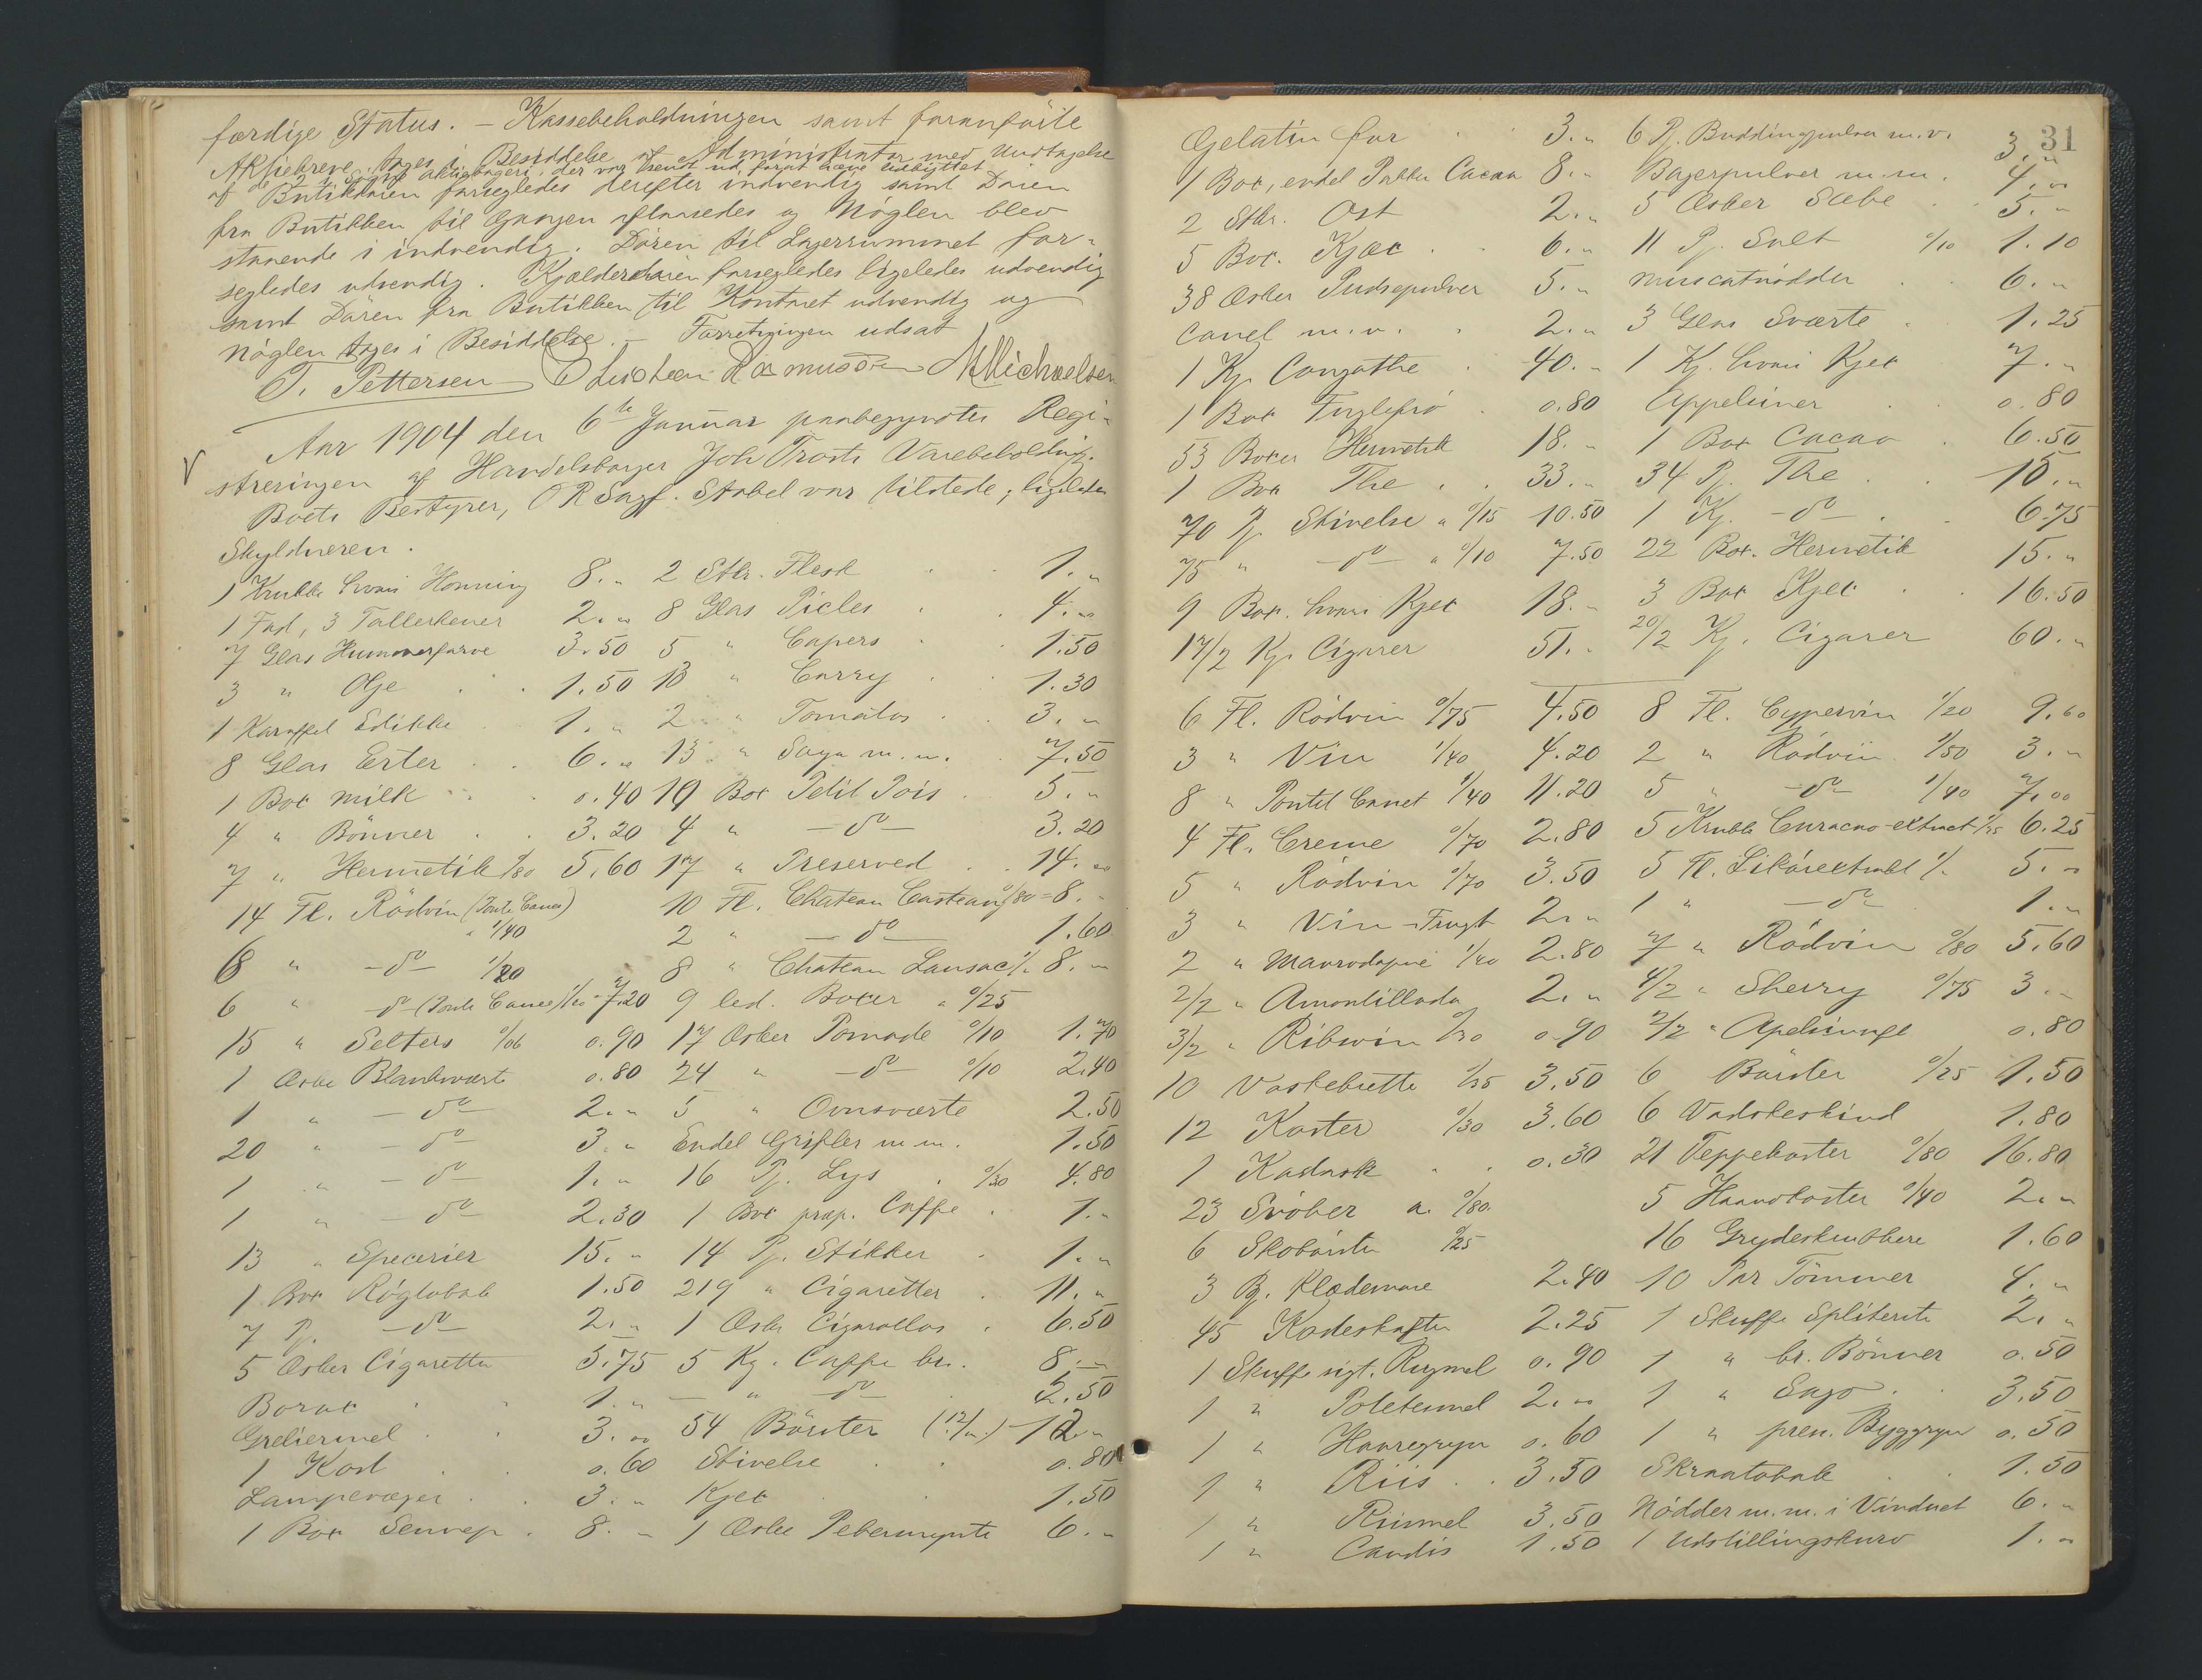 færdige Status. – Kassebeholdningen samt foranførte
Aktiebreve tages i Besiddelse af Administrator med Undtagelse
af Aktiebrevet, der var sendt ud forat hæve Udbyttet
af Butikdøren forsegledes derefter indvendig samt Døren
fra Butikken til Gangen aflaasedes og Nøglen blev
staaende i indvendig. Døren til Lagerrummet for-
segledes udvendig. Kjælderdøren forsegledes ligeledes udvendig
samt Døren fra Butikken til Kontoret udvendig og
Nøglen tages i Besiddelse. – Forretningen udsat
T. Pettersen Christian Rasmussen M Michaelsen
Aar 1904 den 6te Januar paabegyndtes Regi-
streringen af Handelsborger Joh Trosts Varebeholdning.
Boets Bestyrer, O R Sagf. Stabel var tilstede; ligeledes
Skyldneren.
1 Krukke Honning 8. „ 2 Stkr. Flesk 1. „
1 Fad, 3 Tallerkener 2. „ 8 Glas Picles 4. „
7 Glas Hummerfarve 3.50 5 „ Capers 1.50
3 „ Olje 1.50 13 „ Carry 1.30
1 Karaffel Edikke 1. „ 2 „ Tomatos 3. „
8 Glas Erter 6. „ 13 „ Soya m.m. 7.50
1 Box milk 0.40 19 Box Petit Pois 5. „
4 „ Bønner 3.20 4 „ – do – 3.20
7 „ Hermetik 0/80 5.60 17 „ Preserved 14. „
14 Fl. Rødvin (Pontet Canet) 10 Fl. Chateau 0/80 = 8. „
„ 1/40 2 „ – do – 1.60
6 „ – do – 1/20 8 „ Chateau Lansac 1/„ 8. „
6 „ do (Pontet Canet) 1/20 7.20 9 led. Boxer a 0/25
15 „ Selters 0/06 0.90 17 Æsker Pomade 0/10 1.70
1 Æske Blanksværte 0.80 24 „ – do – 0/10 2.40
1 „ – do – 2. „ 5 „ Ovnsværte 2.50
20 „ – do – 3. „ Endel Grifler m.m. 1.50
1 „ – do – 1. „ 16 Pj. Lys 0/30 4.80
1 „ – do – 2.30 1 Box præp. Caffe 1. „
13 „ Specerier 15. „ 14 Pj. Stikker 1. „
1 Box Røgtobak 1.50 219 „ Cigaretter 11. „
7 Pj. – do – 2. „ 1 Æske Cigarellos 6.50
5 Æsker Cigaretter 3.75 5 Kg. Caffe br. 8. „
Borax 1. „ – „ – do – 2.50
Greliermel 3. „ 54 Børster (12/„) – 12. „
1 Kost 0.60 Stivelse 0.80
Lampevæger 3. „ Kjex 1.50
1 Box Sennep 8. „ 1 Æske Pebermynte 6. „
31
Gelatin for 3. „ 6 Pj. Buddingpulver m.v. 3. „
1 Box, endel Pakke Cacao 8. „ Bagerpulver m.m. 4. „
2 Stkr. Ost 2. „ 5 Æsker Sæbe 5. „
5 Box. Kjæx 6. „ 11 Pj. Salt 0/10 1.10
38 Æsker Pudsepulver 5. „ muscatnødder 6. „
Canel m.v. 2. „ 3 Glas Sværte 1.25
1 Kj. Congothe 40. „ 1 Kj. Kjex 7. „
1 Box Fuglefrø 0.80 Appelsiner 0.80
53 Boxer Hermetik 18. „ 1 Box Cacao 6.50
1 Box The 33. „ 34 Pj. The 10. „
70 Pj. Stivelse a 0/15 10.50 1 Kj. – do – 6.75
75 „ – do – a 0/10 7.50 22 Box. Hermetik 15. „
9 Box. Kjex 18. „ 3 Box Kjex 16.50
17/2 Kj. Cigarer 51. „ 20/2 Kj. Cigarer 60. „
6 Fl. Rødvin 0/75 4.50 8 Fl. Cypervin 1/20 9.60
3 „ Vin 1/40 4.20 2 „ Rødvin 1/50 3. „
8 „ Pontet Canet 1/40 11.20 5 „ – do – 1/40 7.00
4 Fl. Creme 0/70 2.80 5 Krukk Curacao-extract 1/25 6.25
5 „ Rødvin 0/70 3.50 5 Fl. Likørextrakt 1/„ 5. „
3 „ Vin – Frugt 2. „ 1 „ – do – 1. „
2 „ Mavrodapne 1/40 2.80 7 „ Rødvin 0/80 5.60
2/2 „ Amontillado 2. „ 4/2 „ Sherry 0/75 3. „
3/2 „ Ribsvin 0/30 0.90 2/2 „ 0.80
10 Vaskebrette 0/35 3.50 6 Børster 0/25 1.50
12 Koster 0/30 3.60 6 Vadskeskind 1.80
1 Kadask 0.30 21 Teppekoster 0/80 16.80
23 Svøber a. 0/80 5 Haandkoster 0/40 2. „
6 Skobørster 0/25 16 Grydeskrubbere 1.60
3 Bj. Klædesnore 2.40 10 Par Tømmer 4. „
45 Kosteskafter 2.25 1 Skuffe Spliterter 2. „
1 Skuffe sigt. Rugmel 0.90 1 „ br. Bønner 0.50
1 „ Potetesmel 2. „ 1 „ Sago 3.50
1 „ Havregryn 0.60 1 „ pren. Byggryn 0.50
1 „ Riis 3.50 Skraatobak 1.50
1 „ Riismel 3.50 Nødder m.m. i Vinduet 6. „
1 „ Candis 1.50 1 Udstillingskurv 1. „